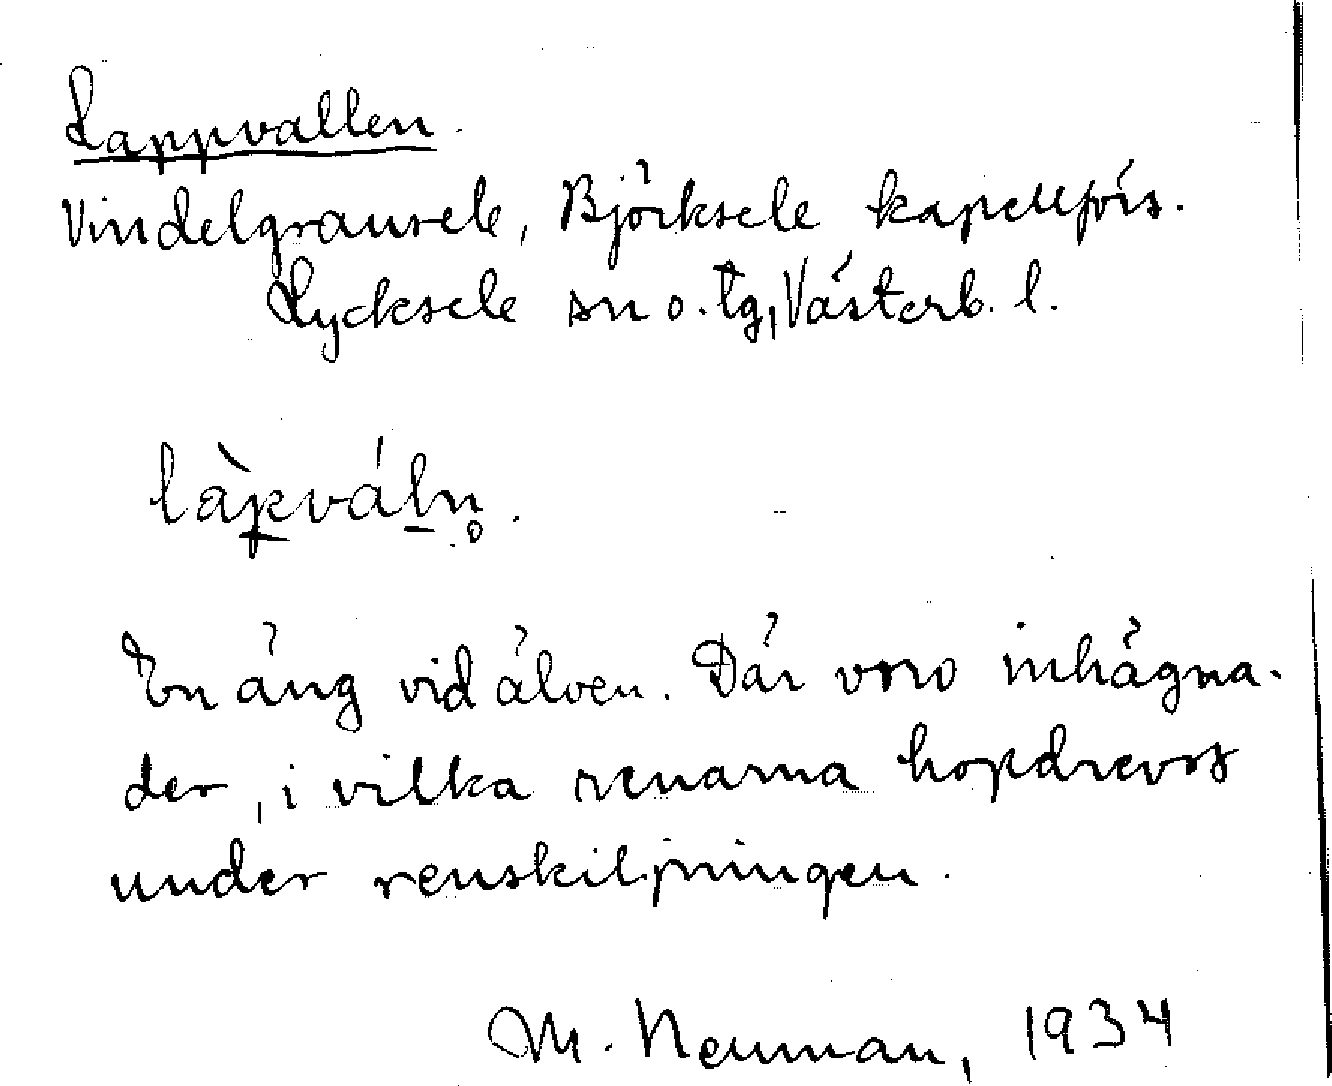 Lappvallen.
Vindelgransele, Björksele kapellförs.
Lycksele sn o. tg, Västerb. l.
làp̲vál̲n̥.
En äng vid älven. Där voro inhägna-
der, i vilka renarna hopdrevos
under renskiljningen.
M. Neuman, 1934